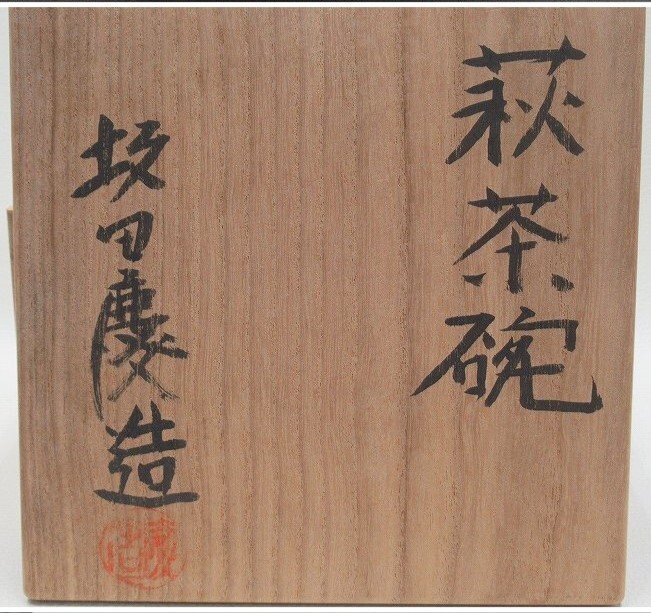 萩茶碗
坂田慶造